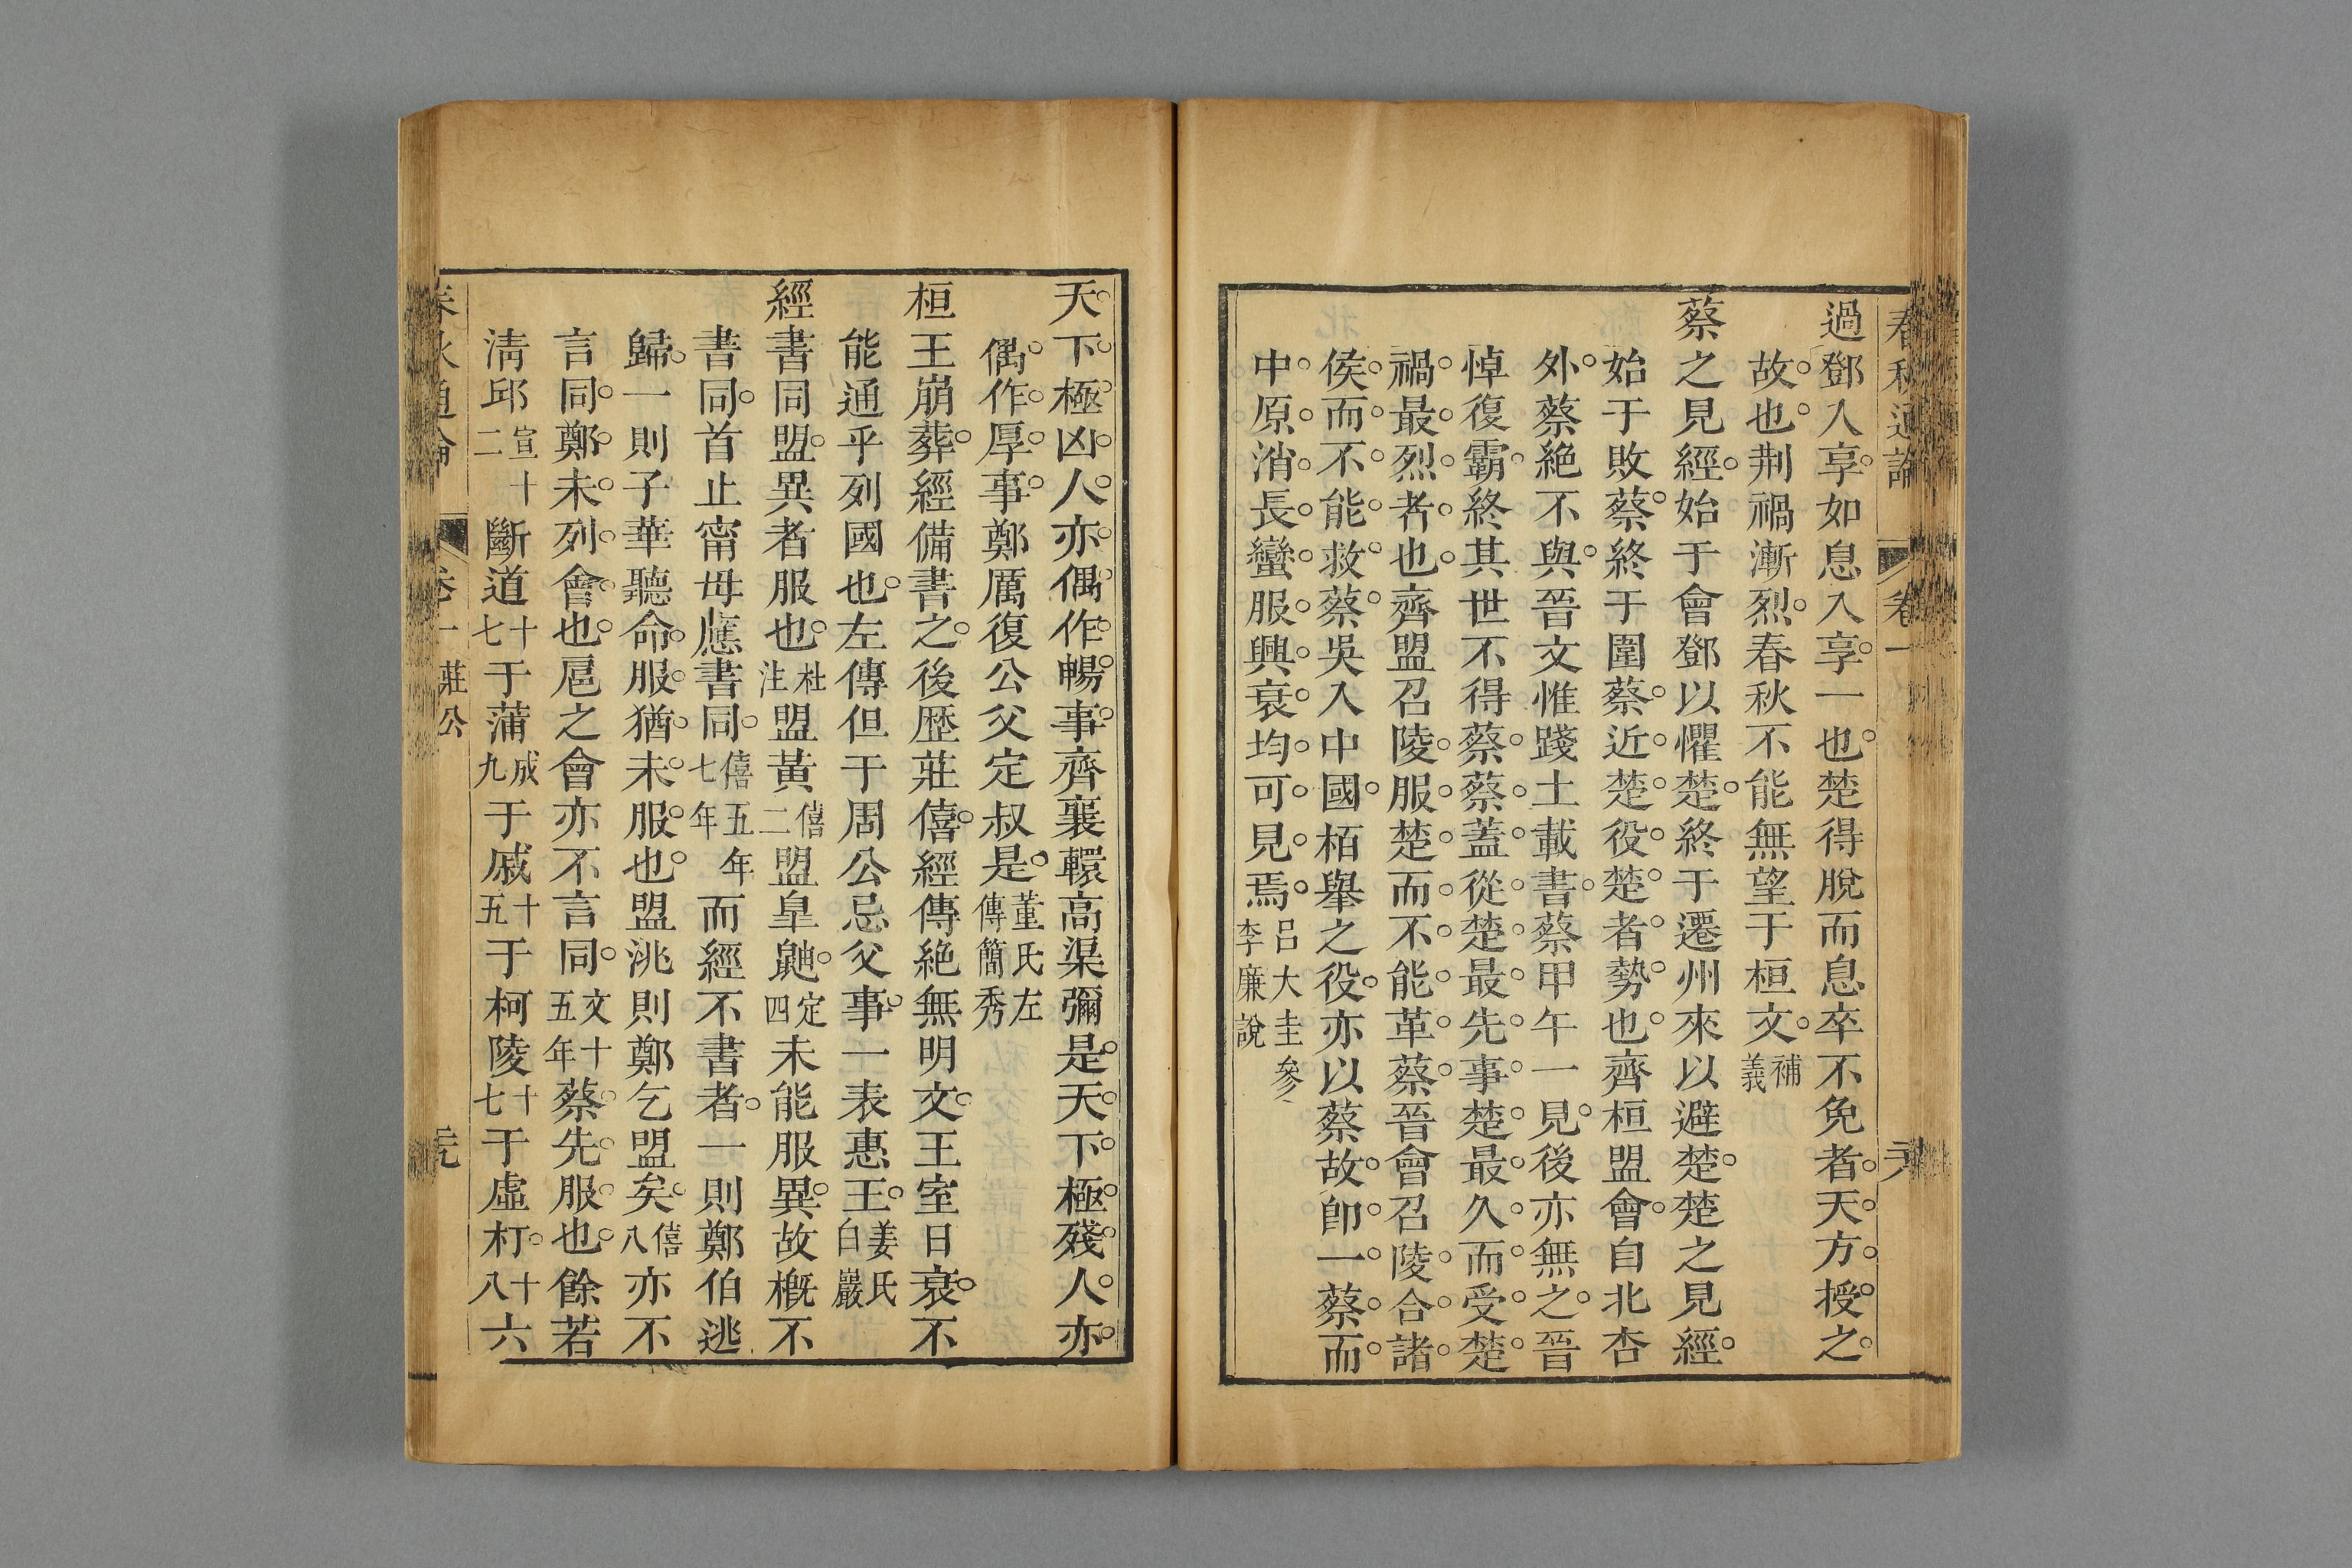 春秋通論 卷一
過鄧入享如息入享一也楚得脫而息卒不免者天方授之
故也荆禍漸烈春秋不能無望于桓文補義
蔡之見經始于會鄧以懼楚終于遷州來以避楚楚之見經
始于敗蔡終于圍蔡近楚役楚者勢也齊桓盟會自北杏
外蔡絶不與晉文惟踐土載書蔡甲午一見後亦無之晉
悼復霸終其世不得蔡蔡蓋從楚最先事楚最久而受楚
禍最烈者也齊盟召陵服楚而不能革蔡晉會召陵合諸
侯而不能救蔡吳入中國栢舉之役亦以蔡故卽一蔡而
中原消長蠻服興衰均可見焉呂大圭參李廉說
天下極凶人亦偶作暢事齊襄轘高渠彌是天下極殘人亦
偶作厚事鄭厲復公父定叔是董氏左傳簡秀
桓王崩葬經備書之後歴莊僖經傳絶無明文王室日衰不
能通乎列國也左傳但于周公忌父事一表惠王姜氏白巖
經書同盟異者服也杜注盟黃僖二盟皐鼬定四未能服異故槪不
書同首止甯毋應書同僖五年七年而經不書者一則鄭伯逃
歸一則子華聽命服猶未服也盟洮則鄭乞盟矣僖八亦不
言同鄭未列會也扈之會亦不言同文十五年蔡先服也餘若
淸邱宣十二斷道十七于蒲成九于戚十五于柯陵十七于虛朾十八六
春秋通論 卷一 莊公 元